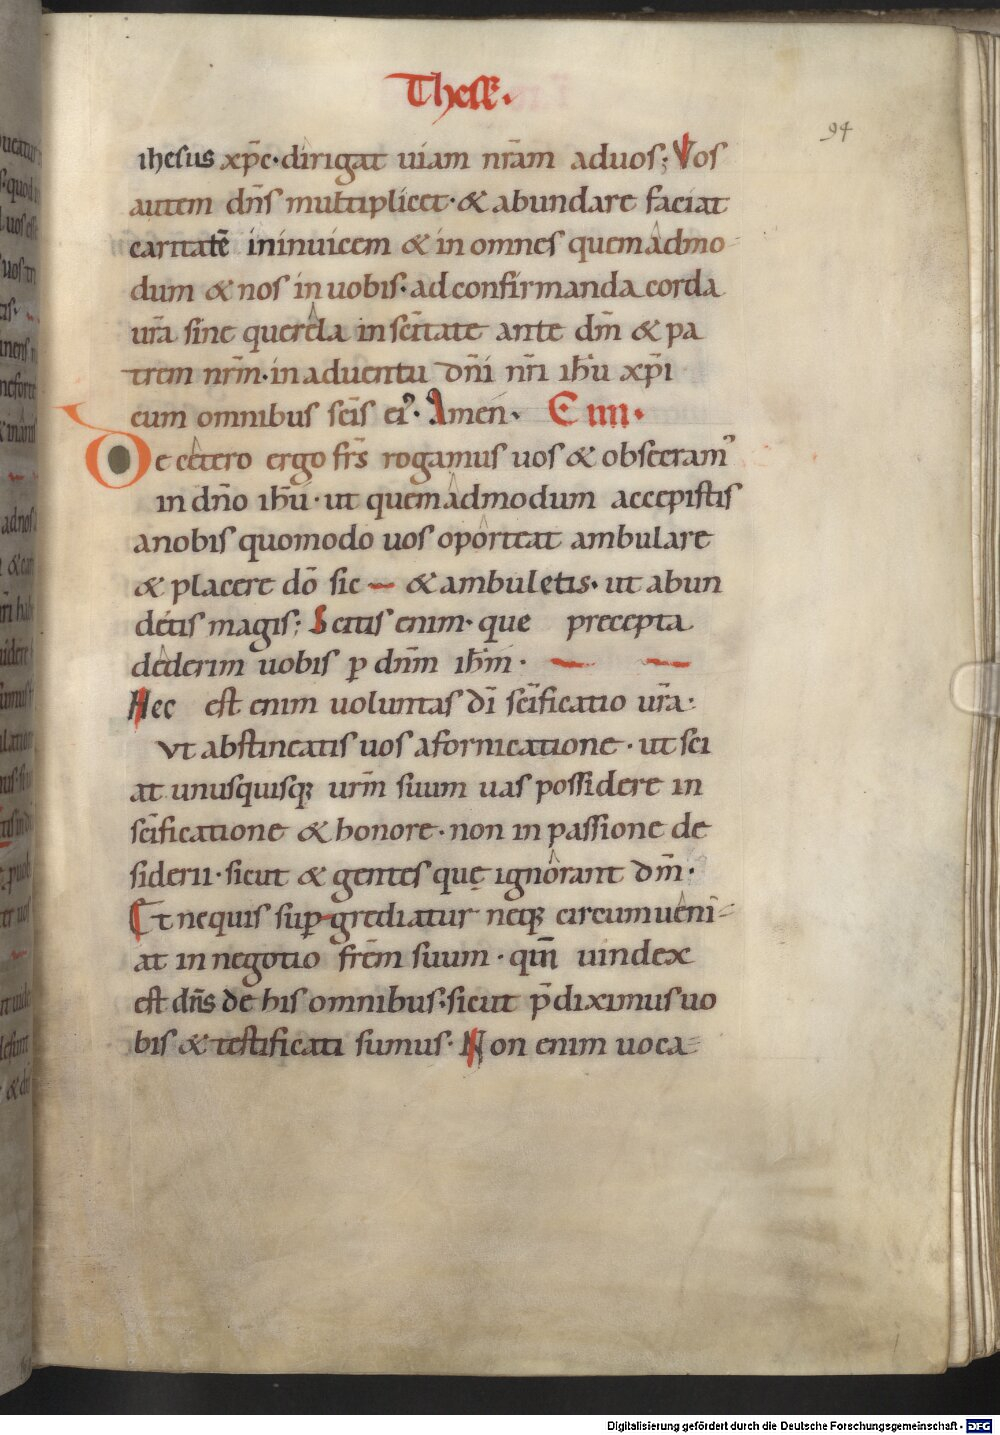 Thess̄.
94
ihesus xp̄c · dirigat uiam nr̄am aduos; Vos
autem dn̄s multiplicet · & abundare faciat
caritatē ininuicem & in omnes quemadmo-
dum & nos in uobis · ad confirmanda corda
ur̄a sine querela in sc̄itate ante dm̄ & pa
trem nr̄m · in aduentu dn̄i nr̄i ih̄u xp̄i
cum omnibus sc̄is ei᾿ · Amen · C IIII ·
De cetero ergo fr̄s rogamus uos & obsecram᾿
in dn̄o ih̄u · ut quemadmodum accepistis
anobis quomodo uos oporteat ambulare
& placere dō sic — & ambuletis · ut abun
detis magis; Scitis enim · que precepta
dederim uobis p dn̄m ih̄m ·
Hec est enim uoluntas dī sc̄ificatio ur̄a ·
vt abstineatis uos afornicatione · ut sci
at unusquisq; ur̄m suum uas possidere in
sc̄ificatione & honore · non in passione de
siderii · sicut & gentes quę ignorant dm̄ ·
Et nequis sup grediatur neq; circumueni-
at in negotio fr̄em suum · qm̄ uindex
est dn̄s de his omnibus · sicut p̄diximus uo
bis & testificati sumus · Non enim uoca-
Digitalisierung gefördert durch die Deutsche Forschungsgemeinschaft - DFG